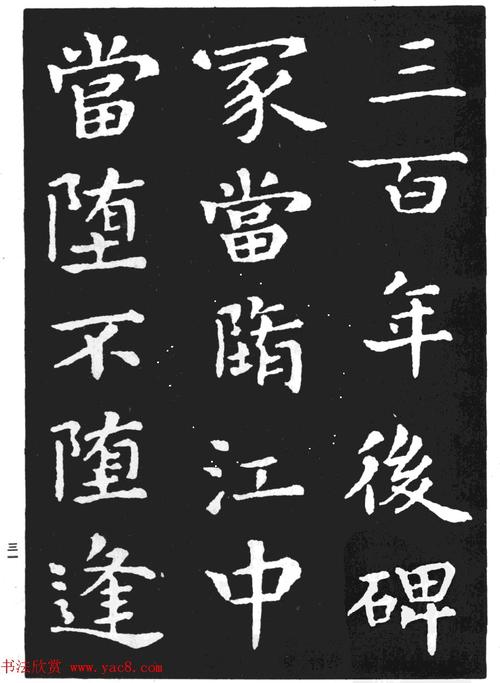 三百年後碑
冢當隋江中
當堕不堕逢
三一
书法欣赏 www.yac8.com